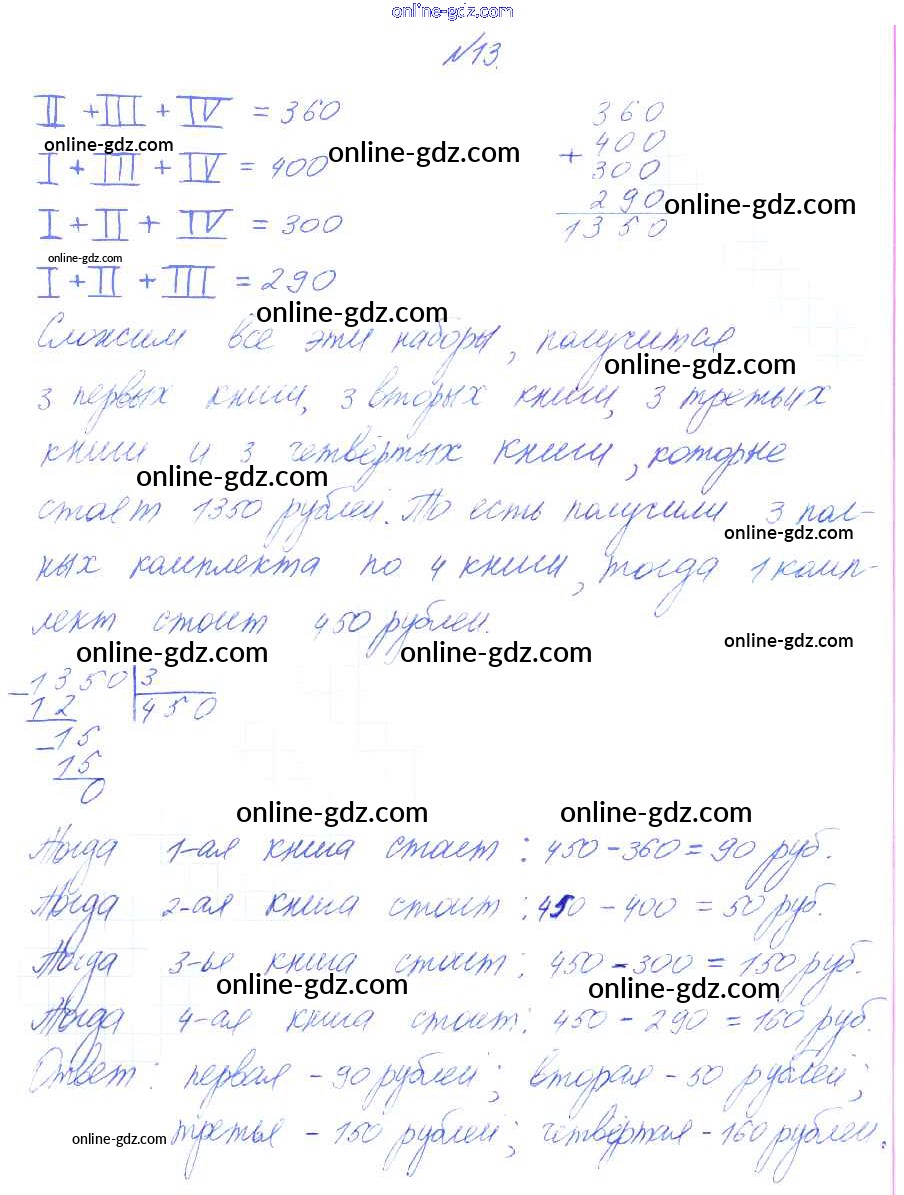 online-gdz.com
№13.
II + III + IV = 360
I + III + IV = 400
I + II + IV = 300
I + II + III = 290
360
+ 400
300
290
1350
online-gdz.com
online-gdz.com
online-gdz.com
online-gdz.com
online-gdz.com
Сложим все эти наборы, получится
online-gdz.com
3 первых книги, 3 вторых книги, 3 третьих
книги и 3 четвёртых книги, которые
online-gdz.com
стоят 1350 рублей. То есть получили 3 пол-
online-gdz.com
ных комплекта по 4 книги, тогда 1 комп-
лект стоит 450 рублей.
online-gdz.com
online-gdz.com online-gdz.com
- 1350 | 3
12 | 450
- 15
15
0
online-gdz.com online-gdz.com
Тогда 1-ая книга стоит: 450 - 360 = 90 руб.
Тогда 2-ая книга стоит: 450 - 400 = 50 руб.
Тогда 3-ье книга стоит: 450 - 300 = 150 руб.
online-gdz.com online-gdz.com
Тогда 4-ая книга стоит: 450 - 290 = 160 руб.
Ответ: первая - 90 рублей; вторая - 50 рублей;
online-gdz.com
третья - 150 рублей; четвёртая - 160 рублей.